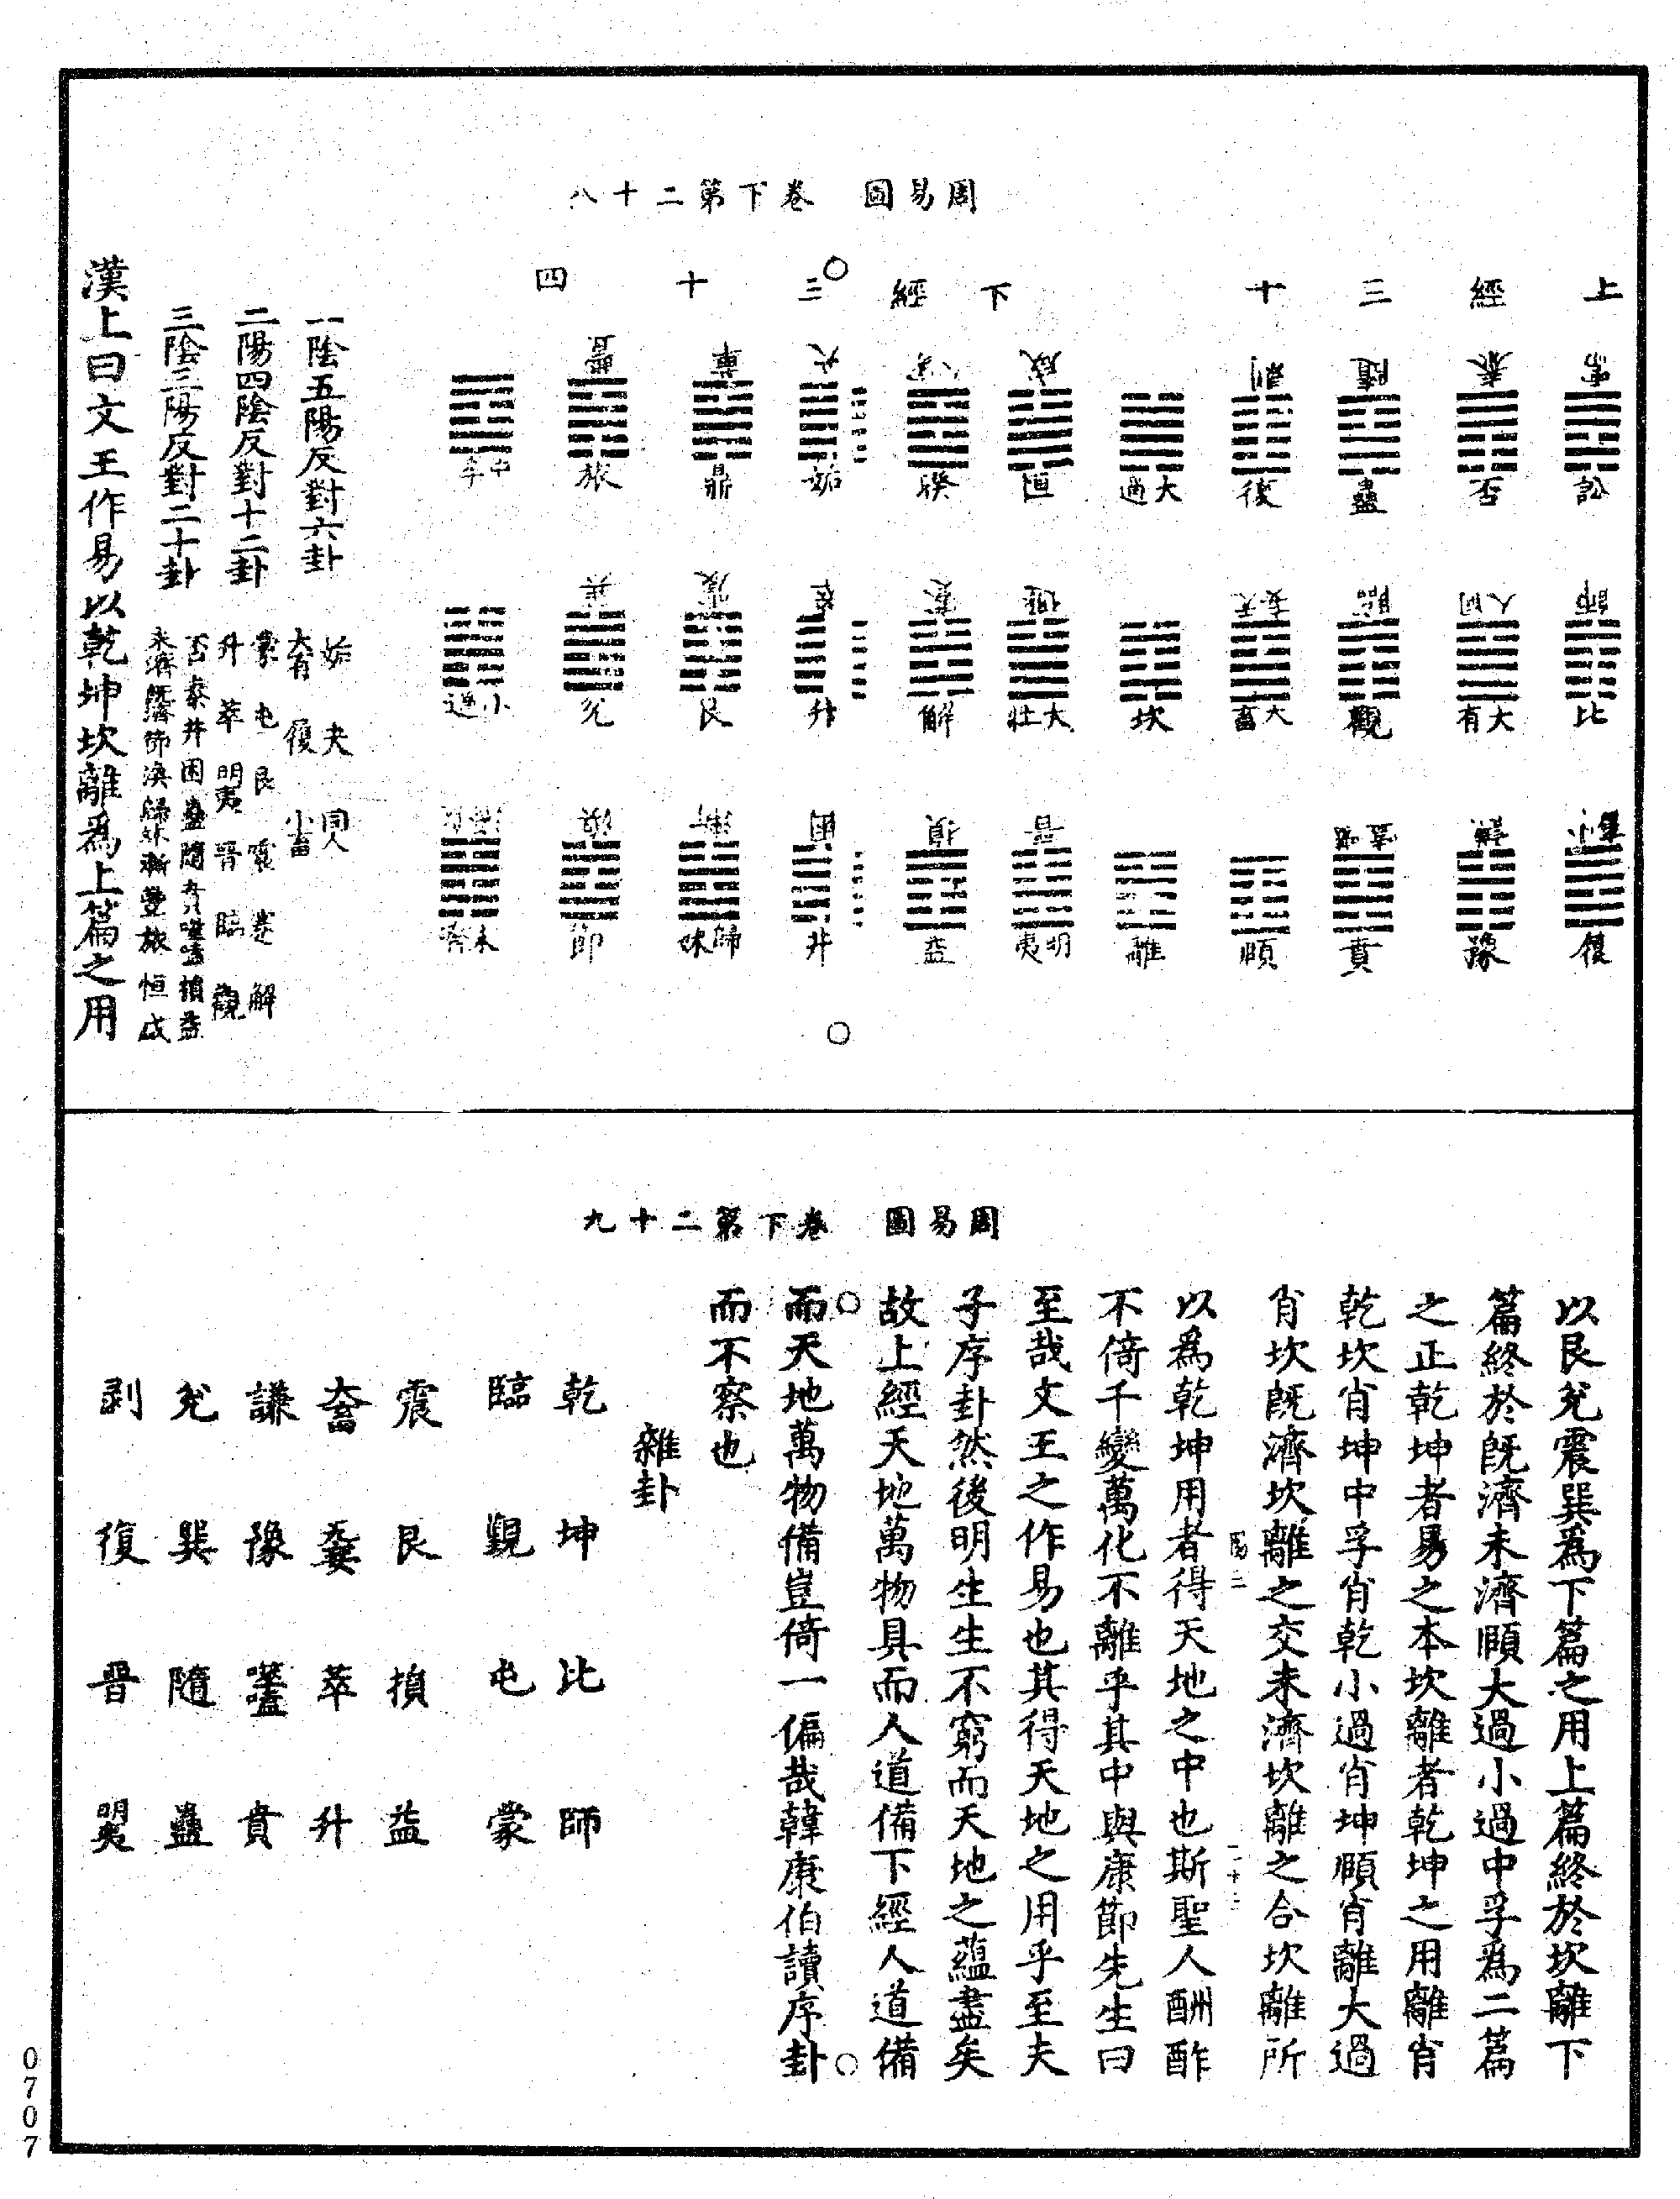 周易圖 卷下第二十八
上 經 三 十
需 訟
師 比
小畜 履
泰 否
同人 大有
謙 豫
隨 蠱
臨 觀
噬嗑 賁
剥 復
无妄 大畜
頤
大過
坎
離
下 經 三 十 四
咸 恒
遯 大壯
晉 明夷
家人 睽
蹇 解
損 益
夬 姤
萃 升
困 井
革 鼎
震 艮
漸 歸妹
豐 旅
巽 兊
渙 節
中孚
小過
既濟 未濟
一陰五陽反對六卦 姤 夬 同人
大有 履 小畜
二陽四陰反對十二卦 蒙 屯 艮 震 蹇 解
升 萃 明夷 晉 臨 觀
三陰三陽反對二十卦 否泰井困蠱隨賁噬嗑損益
未濟既濟節渙歸妹漸豐旅恒咸
漢上曰文王作易以乾坤坎離為上篇之用
周易圖 卷下第二十九
以艮兊震巽為下篇之用上篇終於坎離下
篇終於既濟未濟頤大過小過中孚為二篇
之正乾坤者易之本坎離者乾坤之用離肖
乾坎肖坤中孚肖乾小過肖坤頤肖離大過
肖坎既濟坎離之交未濟坎離之合坎離所
以為乾坤用者得天地之中也斯聖人酬酢
不倚千變萬化不離乎其中與康節先生曰
至哉文王之作易也其得天地之用乎至夫
子序卦然後明生生不窮而天地之蘊盡矣
故上經天地萬物具而人道備下經人道備
而天地萬物備豈倚一偏哉韓康伯讀序卦
而不察也
雜卦
乾 坤 比 師
臨 觀 屯 蒙
震 艮 損 益
大畜 无妄 萃 升
謙 豫 噬嗑 賁
兊 巽 隨 蠱
剥 復 晉 明夷
0707